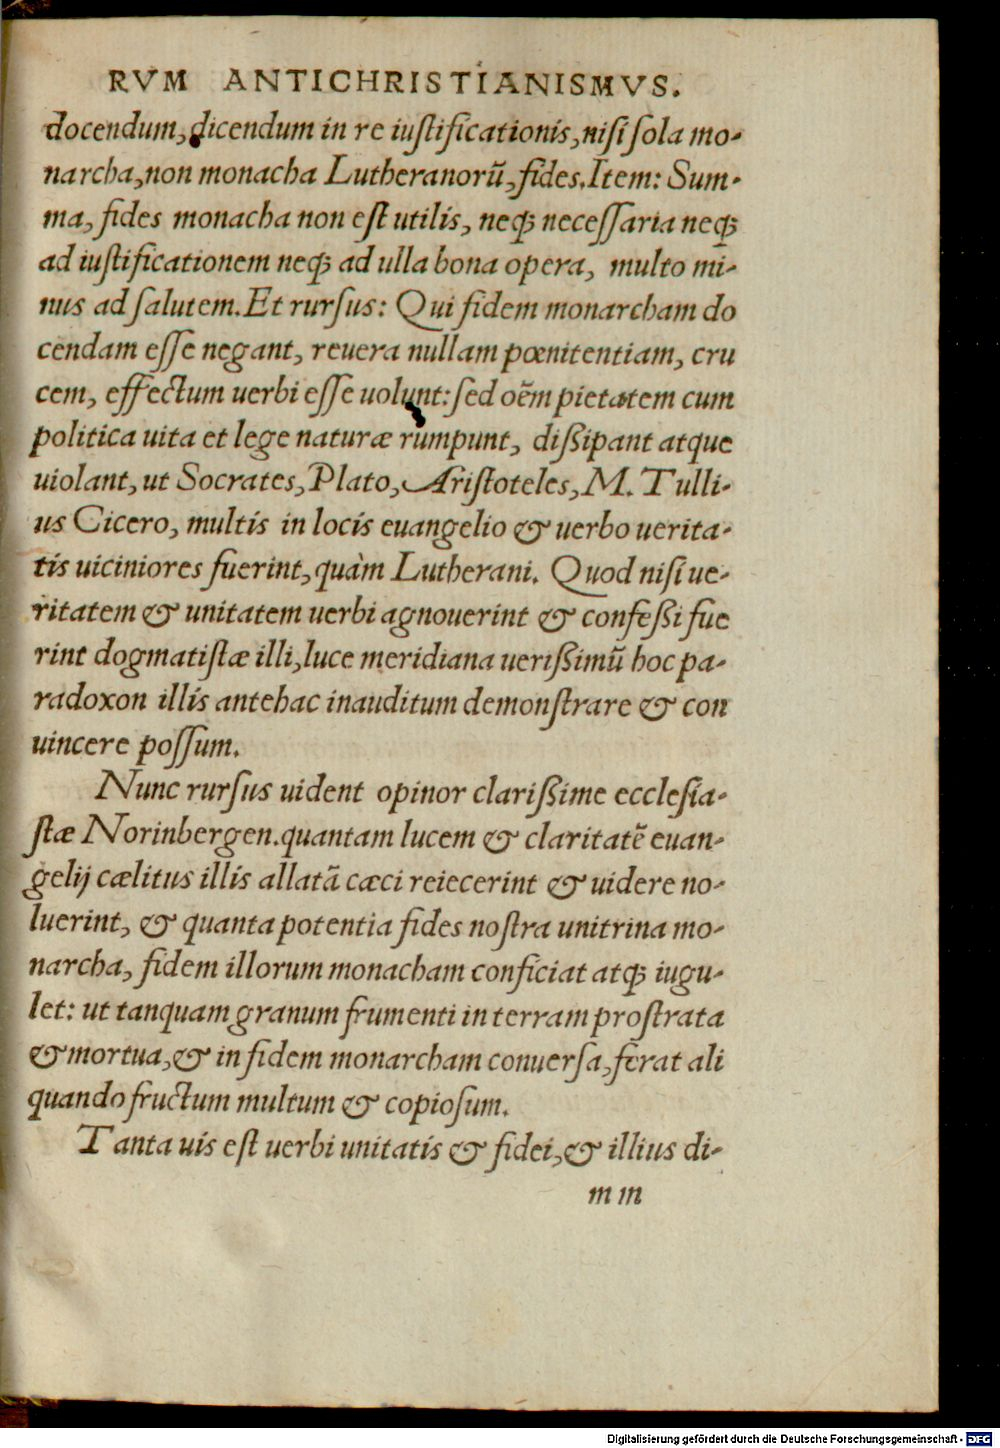 RVM ANTICHRISTIANISMVS.
docendum, dicendum in re iustificationis, nisi sola mo-
narcha, non monacha Lutheranorũ, fides. Item: Sum-
ma, fides monacha non est utilis, neqꝫ necessaria neqꝫ
ad iustificationem neqꝫ ad ulla bona opera, multo mi-
nus ad salutem. Et rursus: Qui fidem monarcham do
cendam esse negant, reuera nullam pœnitentiam, cru
cem, effectum uerbi esse uolunt: sed oẽm pietatem cum
politica uita et lege naturæ rumpunt, dißipant atque
uiolant, ut Socrates, Plato, Aristoteles, M. Tulli-
us Cicero, multis in locis euangelio & uerbo uerita-
tis uiciniores fuerint, quàm Lutherani. Quod nisi ue-
ritatem & unitatem uerbi agnouerint & confeßi fue
rint dogmatistæ illi, luce meridiana uerißimũ hoc pa-
radoxon illis antehac inauditum demonstrare & con
uincere possum.
Nunc rursus uident opinor clarißime ecclesia-
stæ Norinbergen. quantam lucem & claritatẽ euan-
gelij cælitus illis allatã cæci reiecerint & uidere no-
luerint, & quanta potentia fides nostra unitrina mo-
narcha, fidem illorum monacham conficiat atqꝫ iugu-
let: ut tanquam granum frumenti in terram prostrata
& mortua, & in fidem monarcham conuersa, ferat ali
quando fructum multum & copiosum.
Tanta uis est uerbi unitatis & fidei, & illius di-
m m
Digitalisierung gefördert durch die Deutsche Forschungsgemeinschaft - DFG